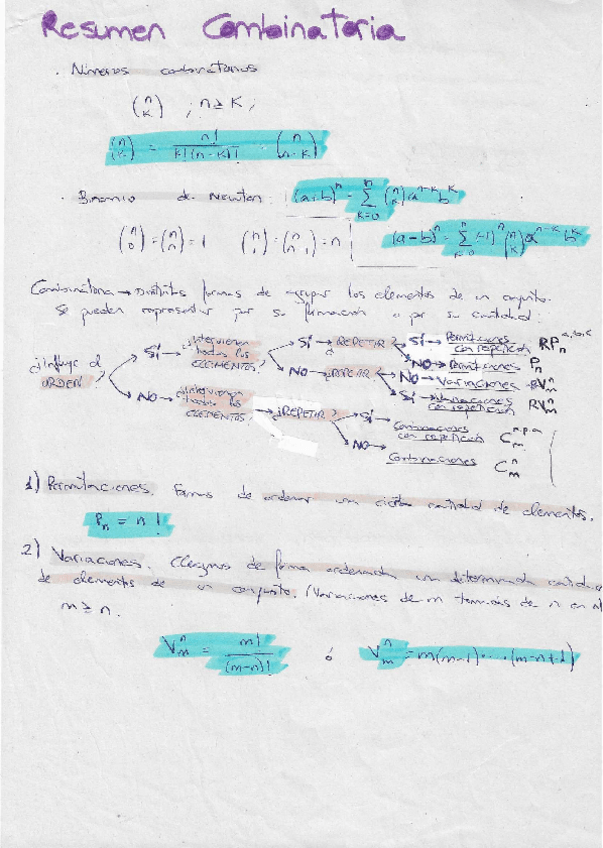 Resumen Combinatoria
· Números combinatorios
(n k) ; n ≥ K ;
(n k) = n! / K!(n-K)! = (n n-K)
· Binomio de Newton: (a+b)^n = Σ_{K=0}^{n} (n K) a^{n-K} b^K
(n 0) = (n n) = 1 (n 1) = (n n-1) = n (a-b)^n = Σ_{K=0}^{n} (-1)^K (n K) a^{n-K} b^K
Combinatoria → Distintas formas de agrupar los elementos de un conjunto.
Se pueden representar por su formación o por su cantidad:
¿Influye el ORDEN?
SÍ → ¿Intervienen todos los ELEMENTOS?
SÍ → ¿REPETIR?
SÍ → Permutaciones con repetición RP_n^{a,b,c}
NO → Permutaciones P_n
NO → ¿REPETIR?
NO → Variaciones V_m^n
SÍ → Variaciones con repetición RV_m^n
NO → ¿Intervienen todos los ELEMENTOS?
→ ¿REPETIR?
SÍ → Combinaciones con repetición C_m
NO → Combinaciones C_m^n
1) Permutaciones. Formas de ordenar una cierta cantidad de elementos.
P_n = n!
2) Variaciones. de forma ordenada una determinada
de elementos de un conjunto. (Variaciones de m de n en n)
m ≥ n.
V_m^n = m! / (m-n)! ó V_m^n = m(m-1)·...·(m-n+1)